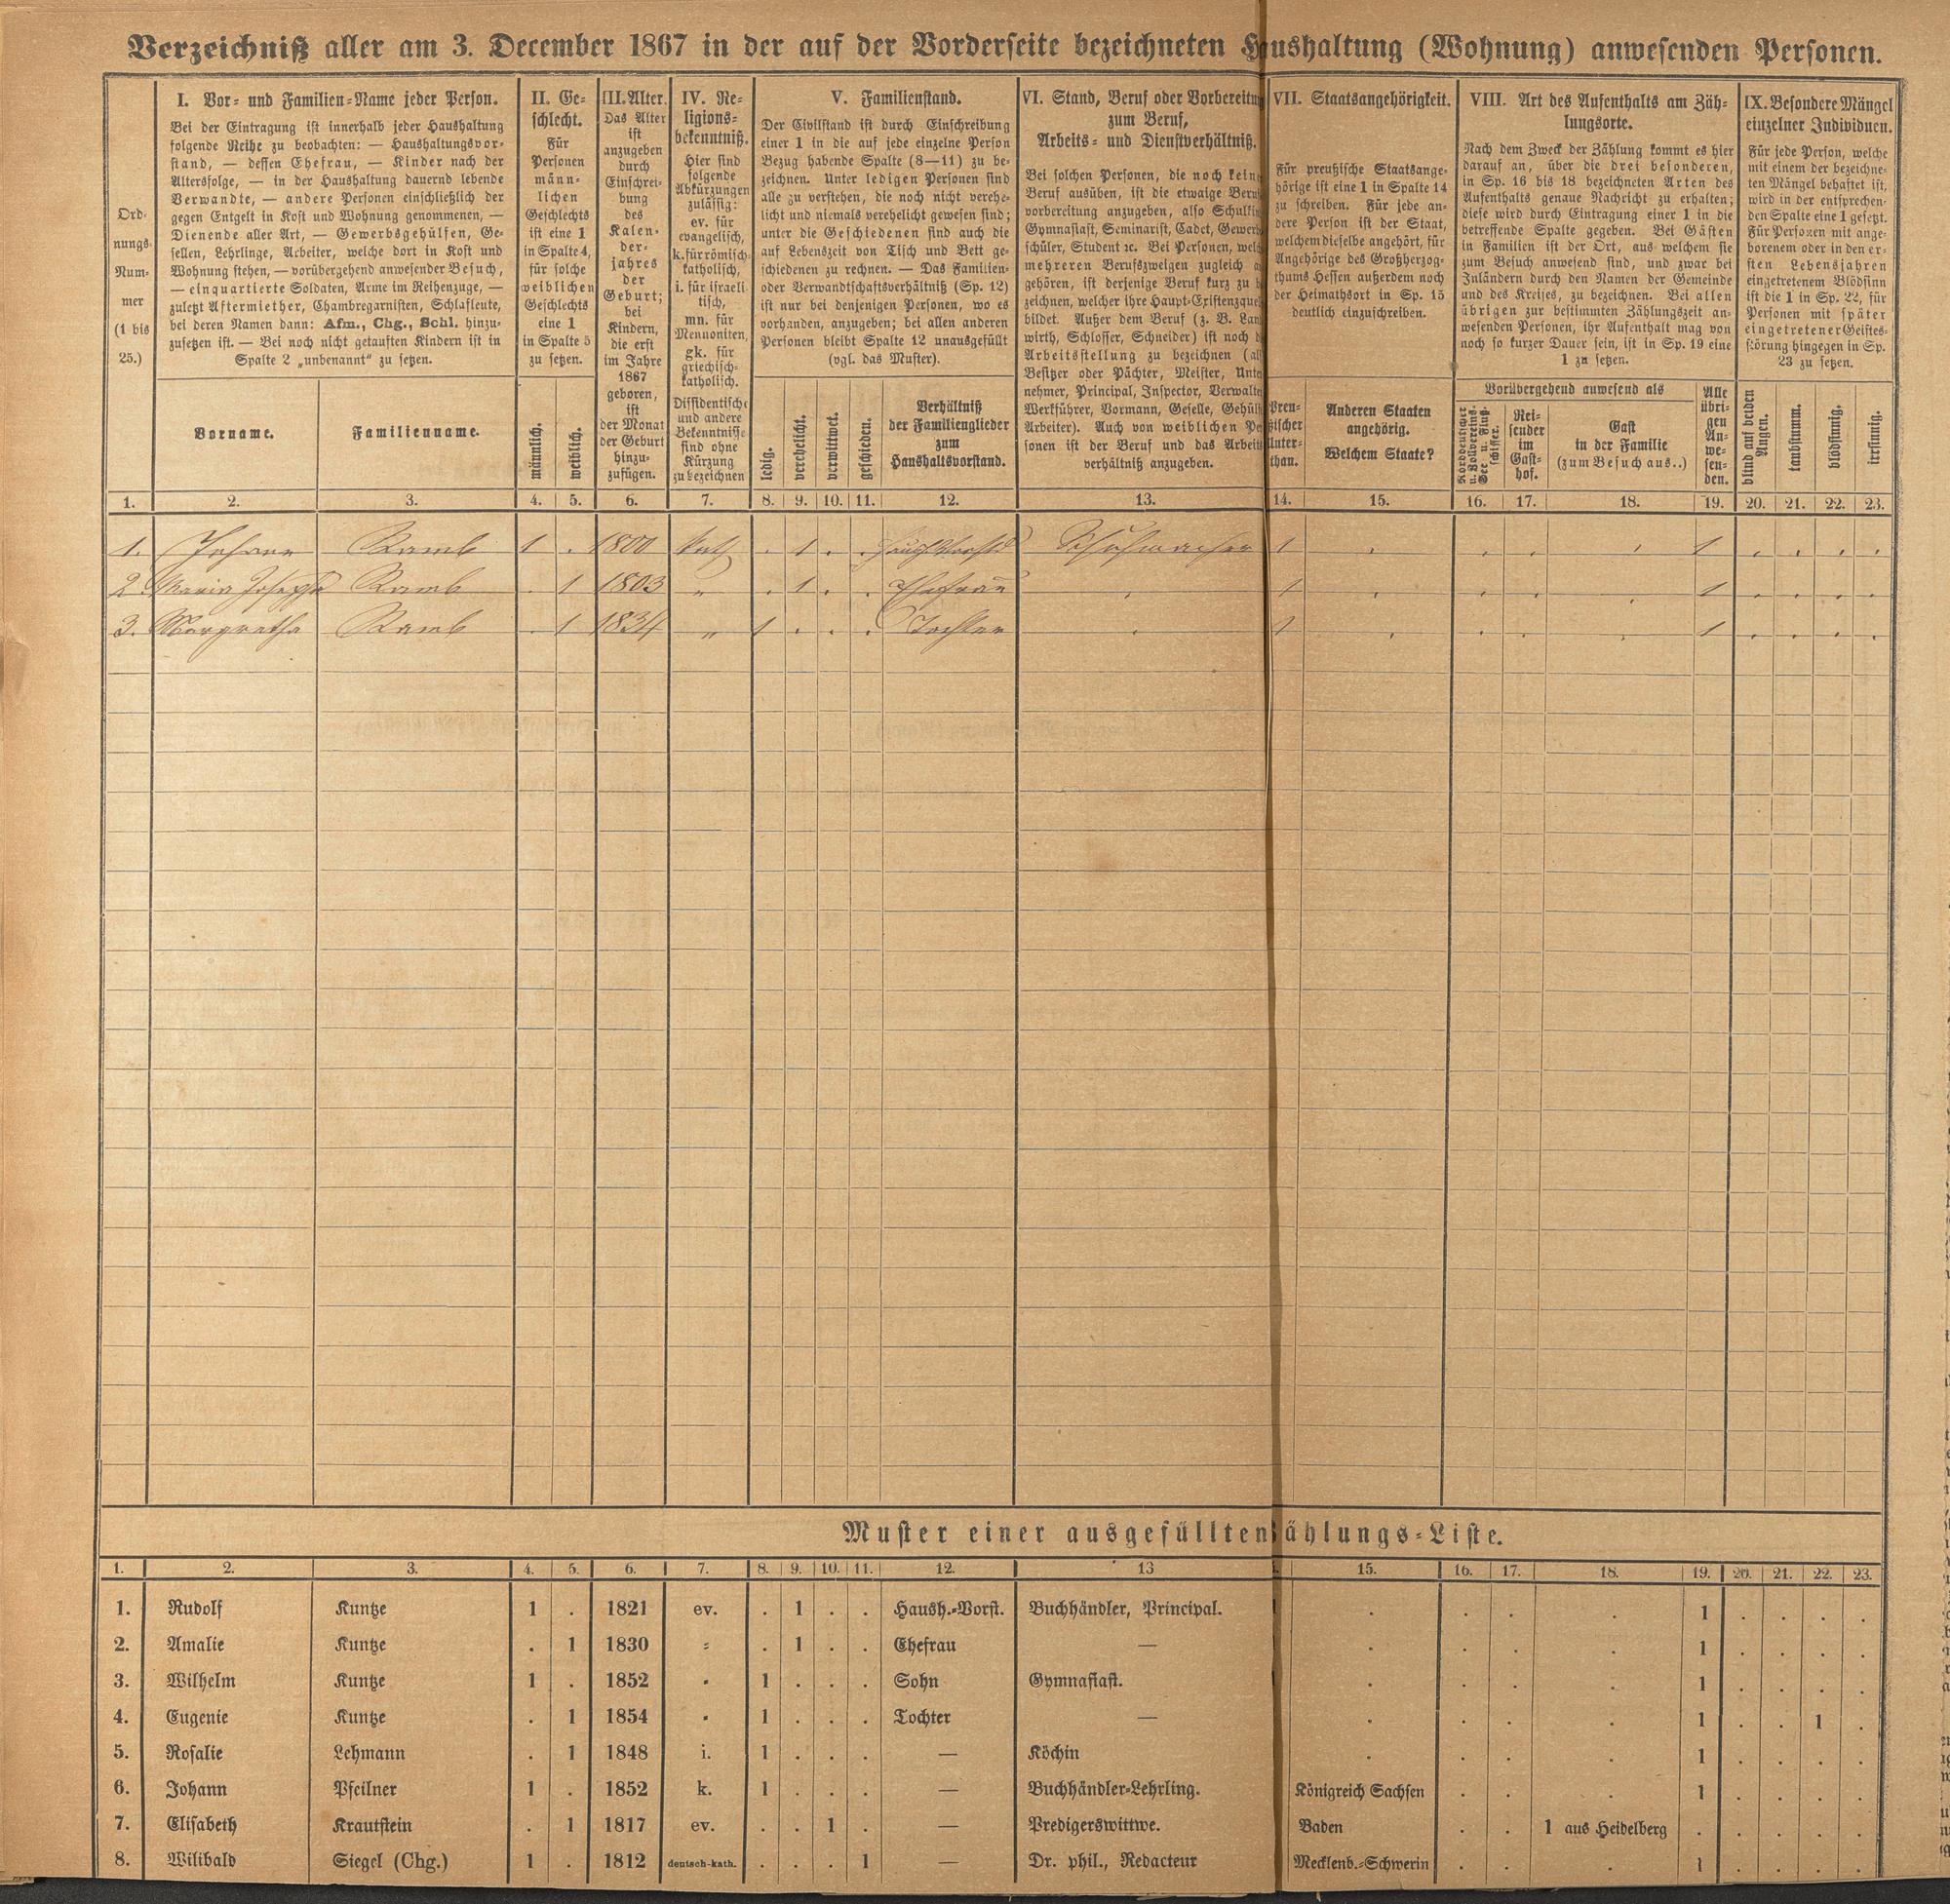 Verzeichniß aller am 3. December 1867 in der auf der Vorderseite bezeichneten Haushaltung (Wohnung) anwesenden Personen.
Ord-
nungs-
Num-
mer
(1 bis
25.)
I. Vor- und Familien-Name jeder Person.
Bei der Eintragung ist innerhalb jeder Haushaltung
folgende Reihe zu beobachten: — Haushaltungsvor-
stand, — dessen Ehefrau, — Kinder nach der
Altersfolge, — in der Haushaltung dauernd lebende
Verwandte, — andere Personen einschließlich der
gegen Entgelt in Kost und Wohnung genommenen, —
Dienende aller Art, — Gewerbsgehülfen, Ge-
sellen, Lehrlinge, Arbeiter, welche dort in Kost und
Wohnung stehen, — vorübergehend anwesender Besuch,
— einquartierte Soldaten, Arme im Reihenzuge, —
zuletzt Aftermiether, Chambregarnisten, Schlafleute,
bei deren Namen dann: Afm., Chg., Schl. hinzu-
zusetzen ist. — Bei noch nicht getauften Kindern ist in
Spalte 2 „unbenannt“ zu setzen.
Vorname.
Familienname.
II. Ge-
schlecht.
Für
Personen
männ-
lichen
Geschlechts
ist eine 1
in Spalte 4,
für solche
weiblichen
Geschlechts
eine 1
in Spalte 5
zu setzen.
männlich.
weiblich.
III. Alter.
Das Alter
ist
anzugeben
durch
Einschrei-
bung
des
Kalen-
der-
jahres
der
Geburt;
bei
Kindern,
die erst
im Jahre
1867
geboren,
ist
der Monat
der Geburt
hinzu-
zufügen.
IV. Re-
ligions-
bekenntniß.
Hier sind
folgende
Abkürzungen
zulässig:
ev. für
evangelisch,
k. für römisch-
katholisch,
i. für israeli-
tisch,
mn. für
Mennoniten,
gk. für
griechisch-
katholisch.
Dissidentische
und andere
Bekenntnisse
sind ohne
Kürzung
zu bezeichnen
V. Familienstand.
Der Civilstand ist durch Einschreibung
einer 1 in die auf jede einzelne Person
Bezug habende Spalte (8—11) zu be-
zeichnen. Unter ledigen Personen sind
alle zu verstehen, die noch nicht verehe-
licht und niemals verehelicht gewesen sind;
unter die Geschiedenen sind auch die
auf Lebenszeit von Tisch und Bett ge-
schiedenen zu rechnen. — Das Familien-
oder Verwandtschaftsverhältniß (Sp. 12)
ist nur bei denjenigen Personen, wo es
vorhanden, anzugeben; bei allen anderen
Personen bleibt Spalte 12 unausgefüllt
(vgl. das Muster).
ledig.
verehelicht.
verwittwet.
geschieden.
Verhältniß
der Familienglieder
zum
Haushaltsvorstand.
VI. Stand, Beruf oder Vorbereitun
zum Beruf,
Arbeits- und Dienstverhältniß.
Bei solchen Personen, die noch kein
Beruf ausüben, ist die etwaige Beru
vorbereitung anzugeben, also Schulkin
Gymnasiast, Seminarist, Cadet, Gewerb
schüler, Student ꝛc. Bei Personen, welc
mehreren Berufszweigen zugleich a
gehören, ist derjenige Beruf kurz zu b
zeichnen, welcher ihre Haupt-Existenzque
bildet. Außer dem Beruf (z. B. Lan
wirth, Schlosser, Schneider) ist noch d
Arbeitsstellung zu bezeichnen (al
Besitzer oder Pächter, Meister, Unte
nehmer, Principal, Inspector, Verwalte
Werkführer, Vormann, Geselle, Gehül
Arbeiter). Auch von weiblichen Pe
sonen ist der Beruf und das Arbeit
verhältniß anzugeben.
VII. Staatsangehörigkeit.
Für preußische Staatsange-
hörige ist eine 1 in Spalte 14
zu schreiben. Für jede an-
dere Person ist der Staat,
welchem dieselbe angehört, für
Angehörige des Großherzog-
thums Hessen außerdem noch
der Heimathsort in Sp. 15
deutlich einzuschreiben.
Preu-
ßischer
Unter-
than.
Anderen Staaten
angehörig.
Welchem Staate?
VIII. Art des Aufenthalts am Zäh-
lungsorte.
Nach dem Zweck der Zählung kommt es hier
darauf an, über die drei besonderen,
in Sp. 16 bis 18 bezeichneten Arten des
Aufenthalts genaue Nachricht zu erhalten;
diese wird durch Eintragung einer 1 in die
betreffende Spalte gegeben. Bei Gästen
in Familien ist der Ort, aus welchem sie
zum Besuch anwesend sind, und zwar bei
Inländern durch den Namen der Gemeinde
und des Kreises, zu bezeichnen. Bei allen
übrigen zur bestimmten Zählungszeit an-
wesenden Personen, ihr Aufenthalt mag von
noch so kurzer Dauer sein, ist in Sp. 19 eine
1 zu setzen.
Vorübergehend anwesend als
Norddeutscher
u. Zollvereins-
See- u. Fluß-
schiffer.
Rei-
sender
im
Gast-
hof.
Gast
in der Familie
(zum Besuch aus..)
Alle
übri-
gen
An-
we-
sen-
den.
IX. Besondere Mängel
einzelner Individuen.
Für jede Person, welche
mit einem der bezeichne-
ten Mängel behaftet ist,
wird in der entsprechen-
den Spalte eine 1 gesetzt.
Für Personen mit ange-
borenem oder in den er-
sten Lebensjahren
eingetretenem Blödsinn
ist die 1 in Sp. 22, für
Personen mit später
eingetretener Geistes-
störung hingegen in Sp.
23 zu setzen.
blind auf beiden
Augen.
taubstumm.
blödsinnig.
irrsinnig.
1. 2. 3. 4. 5. 6. 7. 8. 9. 10. 11. 12. 13. 14. 15. 16. 17. 18. 19. 20. 21. 22. 23.
1. Johann Ramb 1 . 1800 kath . 1 . . Schuhmacher 1 . . . . 1 . . . .
2. Maria Josepha Ramb . 1 1803 „ . 1 . . Ehefrau . 1 . . . . 1 . . . .
3. Margretha Ramb . 1 1834 „ 1 . . . Tochter . 1 . . . . 1 . . . .
Muster einer ausgefüllten ählungs-Liste.
1. 2. 3. 4. 5. 6. 7. 8. 9. 10. 11. 12. 13 15. 16. 17. 18. 19. 20. 21. 22. 23.
1. Rudolf Kuntze 1 . 1821 ev. . 1 . . Haush.-Vorst. Buchhändler, Principal. 1 . . . . 1 . . . .
2. Amalie Kuntze . 1 1830 „ . 1 . . Ehefrau — . . . . 1 . . . .
3. Wilhelm Kuntze 1 . 1852 „ 1 . . . Sohn Gymnasiast. . . . . 1 . . . .
4. Eugenie Kuntze . 1 1854 „ 1 . . . Tochter — . . . . 1 . . 1 .
5. Rosalie Lehmann . 1 1848 i. 1 . . . — Köchin . . . . 1 . . . .
6. Johann Pfeilner 1 . 1852 k. 1 . . . — Buchhändler-Lehrling. Königreich Sachsen . . . 1 . . . .
7. Elisabeth Krautstein . 1 1817 ev. . . 1 . — Predigerswittwe. Baden . . 1 aus Heidelberg . . . . .
8. Wilibald Siegel (Chg.) 1 . 1812 deutsch-kath. . . . 1 — Dr. phil., Redacteur Mecklenb.-Schwerin . . . 1 . . . .